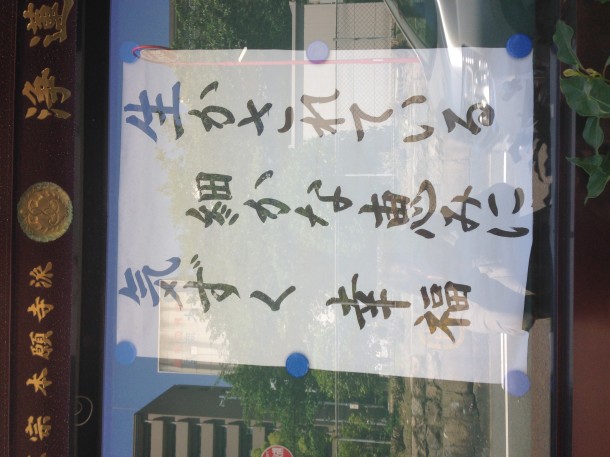 宗本願寺派 浄蓮
生かされている
細かな恵みに
気ずく 幸福